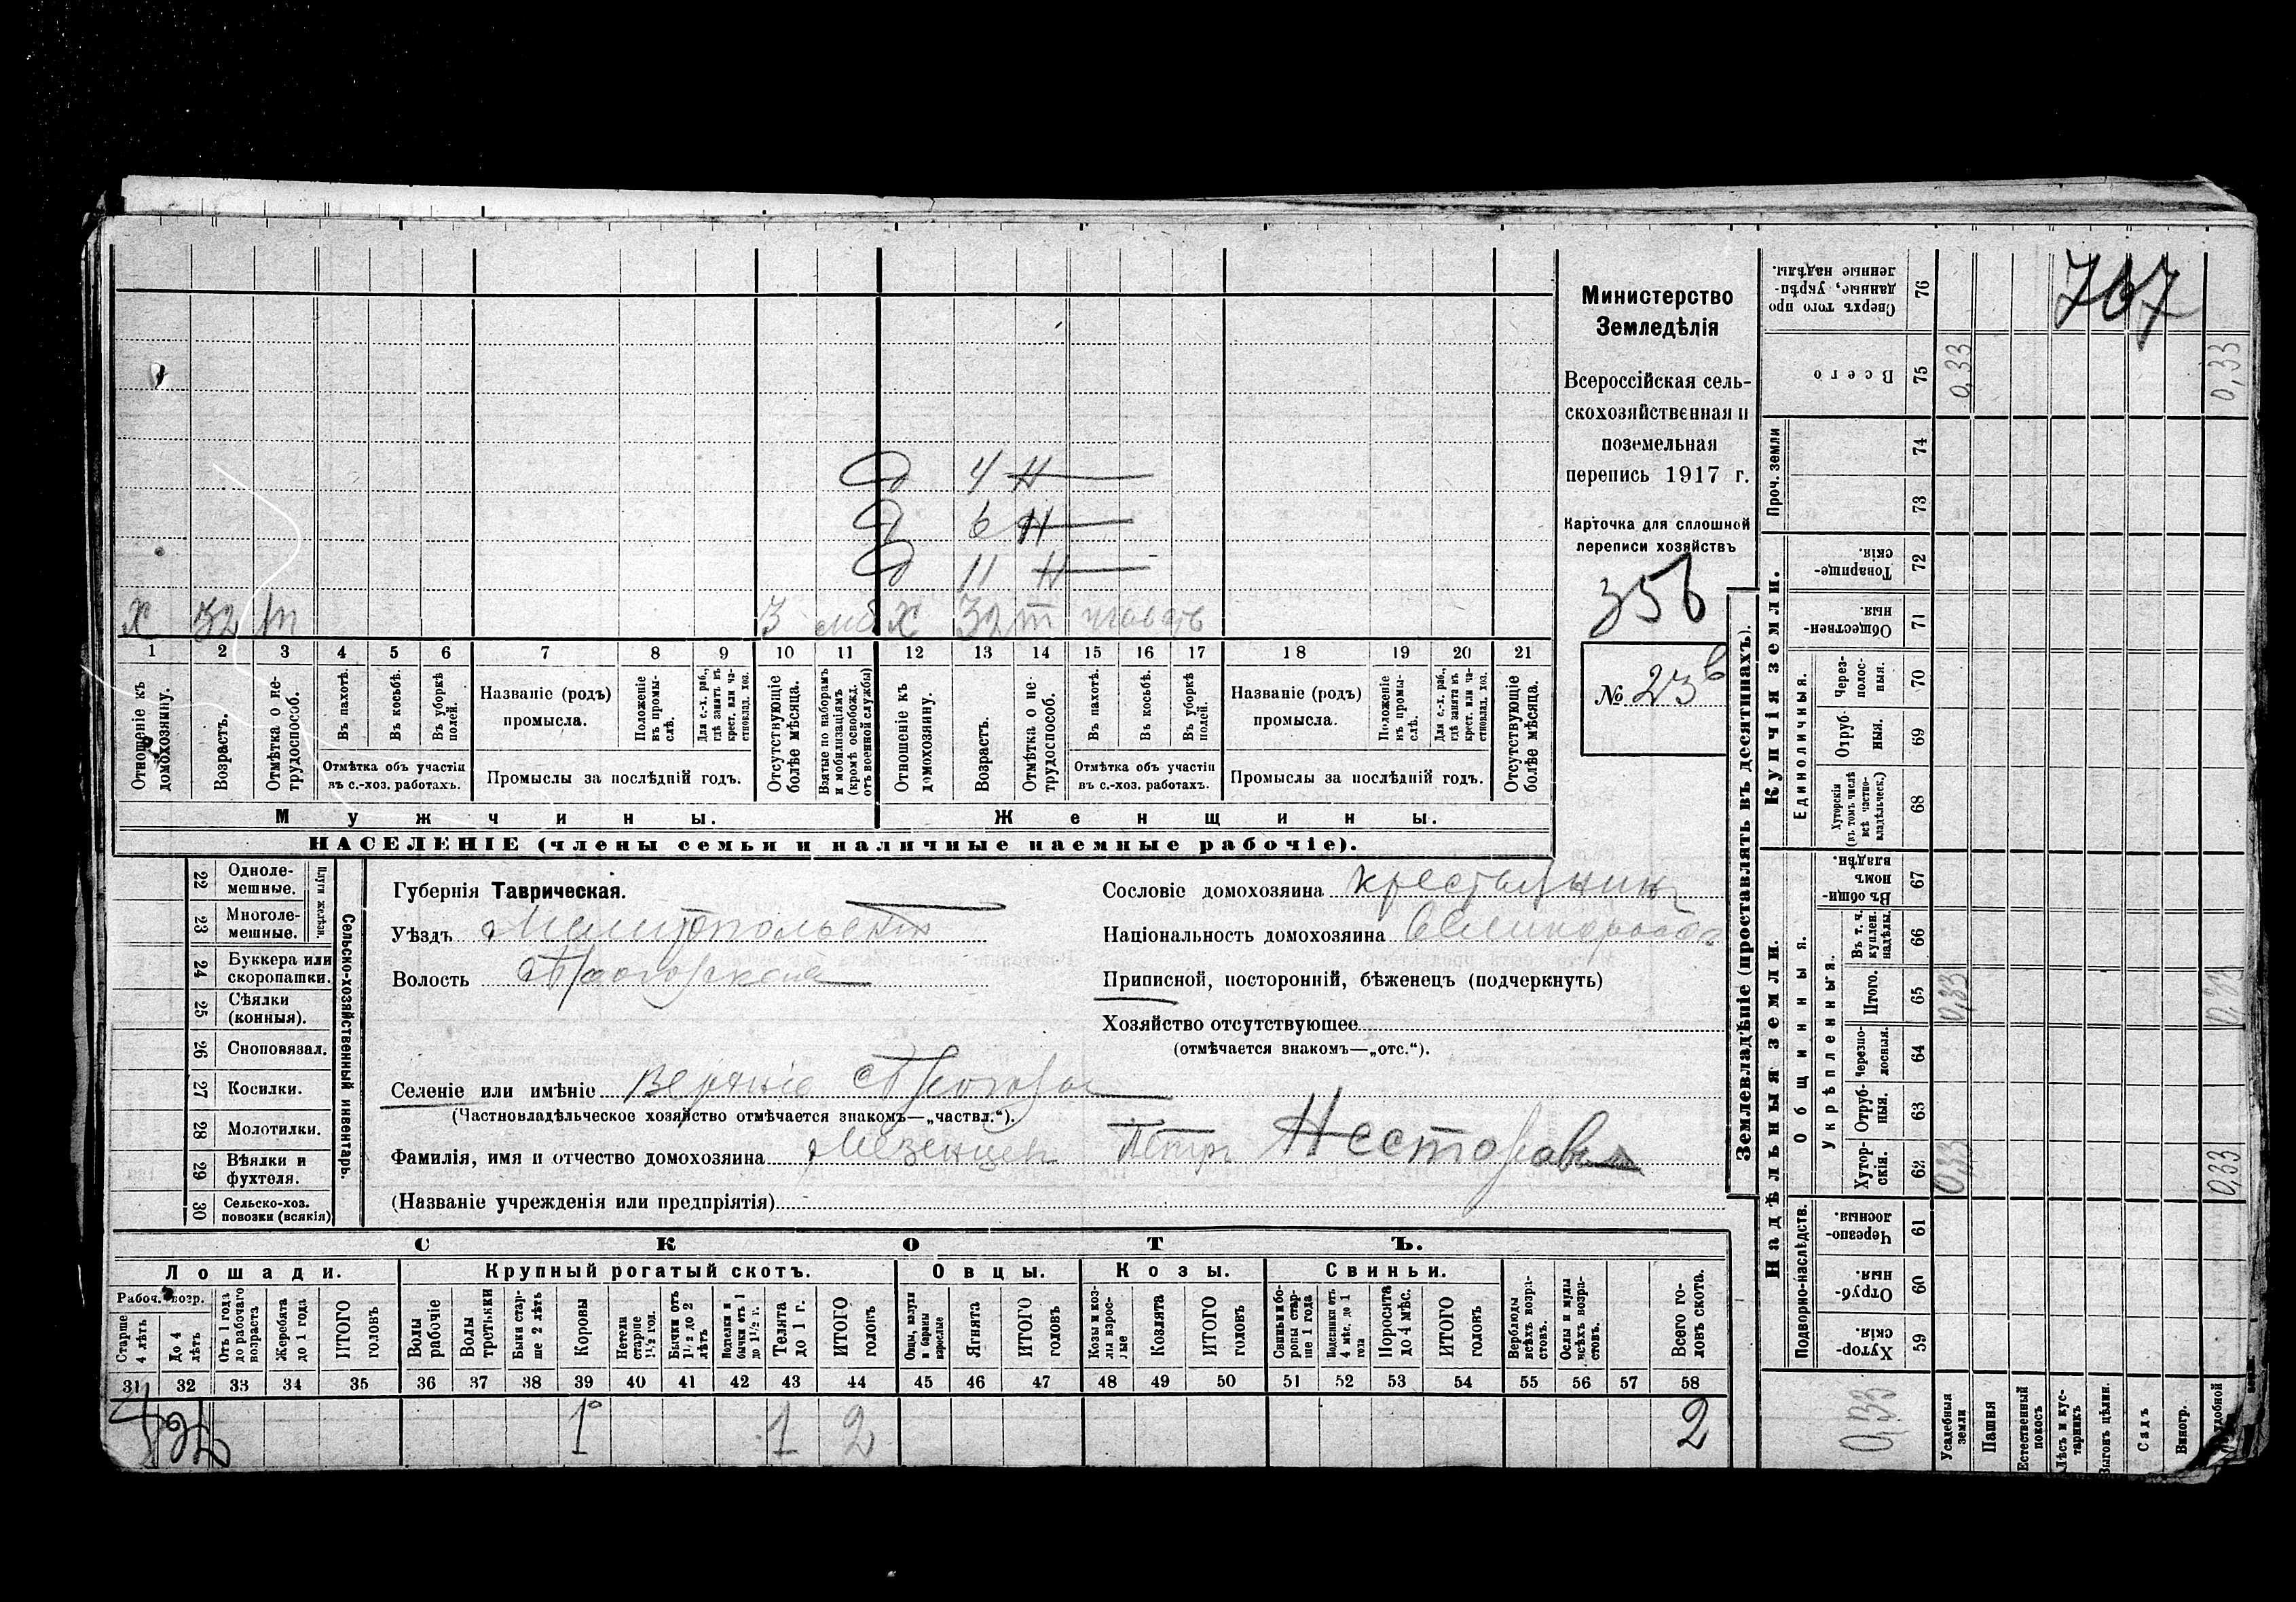 Министерство
Земледѣлія
Всероссійская сель-
скохозяйственная и
поземельная
перепись 1917 г.
Карточка для сплошной
переписи хозяйствъ
356
№ 23
767
Д 4 Н
Д 6 Н
Д 11 Н
Х 32 т 3 моб Х 32 т
1 2 3 4 5 6 7 8 9 10 11 12 13 14 15 16 17 18 19 20 21
Отношеніе къ домохозяину.
Возрастъ.
Отмѣтка о не-трудоспособ.
Въ пахотѣ.
Въ косьбѣ.
Въ уборкѣ полей.
Отмѣтка объ участіи
въ с.-хоз. работахъ.
Названіе (родъ)
промысла.
Положеніе въ промы-слѣ.
Для с.-х. раб., гдѣ занятъ въ крест. или ча-стновлад. хоз.
Промыслы за послѣдній годъ.
Отсутствующіе болѣе мѣсяца.
Взятые по наборамъ и мобилизаціямъ (кромѣ освобожд. отъ военной службы)
Отношеніе къ домохозяину.
Возрастъ.
Отмѣтка о не-трудоспособ.
Въ пахотѣ.
Въ косьбѣ.
Въ уборкѣ полей.
Отмѣтка объ участіи
въ с.-хоз. работахъ.
Названіе (родъ)
промысла.
Положеніе въ промы-слѣ.
Для с.-х. раб., гдѣ занята въ крест. или ча-стновлад. хоз.
Промыслы за послѣдній годъ.
Отсутствующіе болѣе мѣсяца.
Мужчины. Женщины.
НАСЕЛЕНІЕ (члены семьи и наличные наемные рабочіе).
Сельско-хозяйственный инвентарь.
Плуги желѣзн.
22 Одноле-мешные.
23 Многоле-мешные.
24 Буккера или скоропашки.
25 Сѣялки (конныя).
26 Сноповязал.
27 Косилки.
28 Молотилки.
29 Вѣялки и фухтеля.
30 Сельско-хоз. повозки (всякія)
Губернія Таврическая.
Уѣздъ Мелитопольскій
Волость
Селеніе или имѣніе Верхніе
(Частновладѣльческое хозяйство отмѣчается знакомъ—„частвл.“).
Фамилія, имя и отчество домохозяина Мезенцев Петръ Несторовъ
(Названіе учрежденія или предпріятія)
Сословіе домохозяина крестьянин
Національность домохозяина Великоросс
Приписной, посторонній, бѣженецъ (подчеркнуть)
Хозяйство отсутствующее
(отмѣчается знакомъ—„отс.“).
СКОТЪ.
Лошади. Крупный рогатый скотъ. Овцы. Козы. Свиньи.
Рабоч. возр.
Старше 4 лѣтъ
До 4 лѣтъ
Отъ 1 года до рабочаго возраста
Жеребята до 1 года
ИТОГО головъ
Волы рабочіе
Волы третьяки
Быки стар-ше 2 лѣтъ
Коровы
Нетели старше 1½ год.
Бычки отъ 1½ до 2 лѣтъ
Телки и бычки отъ 1 до 1½ г.
Телята до 1 г.
ИТОГО головъ
Овцы, валухи и бараны взрослые
Ягнята
ИТОГО головъ
Козы и коз-лы взрос-лые
Козлята
ИТОГО головъ
Свиньи и бо-ровы стар-ше 1 года
Подсвинки отъ 4 мѣс. до 1 года
Поросята до 4 мѣс.
ИТОГО головъ
Верблюды всѣхъ возра-стовъ.
Ослы и мулы всѣхъ возра-стовъ.
Всего го-ловъ скота.
31 32 33 34 35 36 37 38 39 40 41 42 43 44 45 46 47 48 49 50 51 52 53 54 55 56 57 58
1 1 2 2
Землевладѣніе (проставлять въ десятинахъ).
Купчія земли.
Надѣльныя земли.
Сверхъ того про данные, укрѣп-ленные надѣлы. 76
Всего 75 0,33 0,33
Проч. земли 74 73
Товарище-скія. 72
Обществен-ныя. 71
Единоличныя.
Через-полос-ныя. 70
Отруб-ныя. 69
Хуторскія (въ томъ числѣ всѣ частно-владѣльческ.) 68
Общинныя.
Въ общин-номъ владѣн. 67
Укрѣпленныя.
Въ т. ч. куплен. надѣлы. 66
Итого. 65 0,33 0,33
Черезпо-лосныя. 64
Отруб-ныя. 63
Хутор-скія. 62 0,33 0,33
Подворно-наслѣдств.
Черезпо-лосныя. 61
Отруб-ныя. 60
Хутор-скія. 59
0,33
Усадебныя земли
Пашня
Естественный покосъ
Лѣсъ и кус-тарникъ
Выгонъ цѣлин.
Садъ
Виногр.
удобной